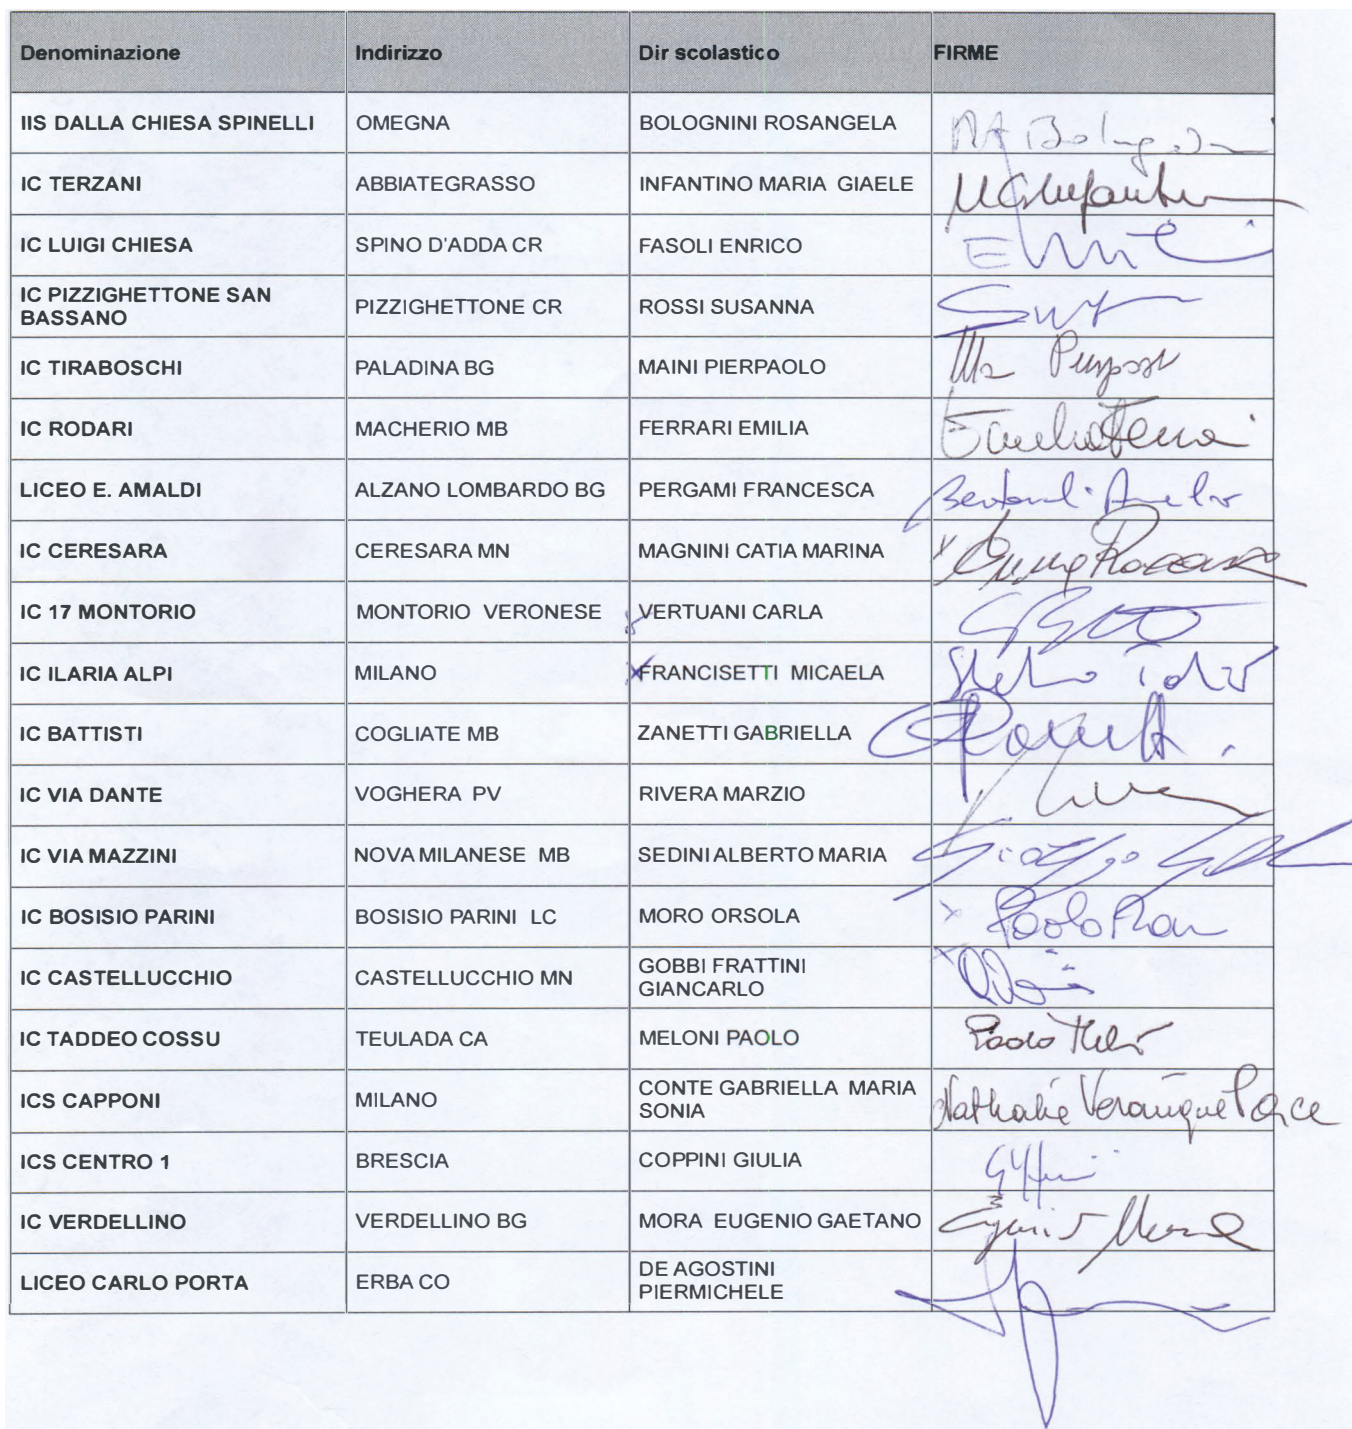 Denominazione Indirizzo Dir scolastico FIRME
IIS DALLA CHIESA SPINELLI OMEGNA BOLOGNINI ROSANGELA
IC TERZANI ABBIATEGRASSO INFANTINO MARIA GIAELE
IC LUIGI CHIESA SPINO D'ADDA CR FASOLI ENRICO
IC PIZZIGHETTONE SAN
BASSANO PIZZIGHETTONE CR ROSSI SUSANNA
IC TIRABOSCHI PALADINA BG MAINI PIERPAOLO
IC RODARI MACHERIO MB FERRARI EMILIA
LICEO E. AMALDI ALZANO LOMBARDO BG PERGAMI FRANCESCA
IC CERESARA CERESARA MN MAGNINI CATIA MARINA
IC 17 MONTORIO MONTORIO VERONESE VERTUANI CARLA
IC ILARIA ALPI MILANO FRANCISETTI MICAELA
IC BATTISTI COGLIATE MB ZANETTI GABRIELLA
IC VIA DANTE VOGHERA PV RIVERA MARZIO
IC VIA MAZZINI NOVA MILANESE MB SEDINI ALBERTO MARIA
IC BOSISIO PARINI BOSISIO PARINI LC MORO ORSOLA
IC CASTELLUCCHIO CASTELLUCCHIO MN GOBBI FRATTINI
GIANCARLO
IC TADDEO COSSU TEULADA CA MELONI PAOLO
ICS CAPPONI MILANO CONTE GABRIELLA MARIA
SONIA Nathalie Veronique
ICS CENTRO 1 BRESCIA COPPINI GIULIA
IC VERDELLINO VERDELLINO BG MORA EUGENIO GAETANO
LICEO CARLO PORTA ERBA CO DE AGOSTINI
PIERMICHELE